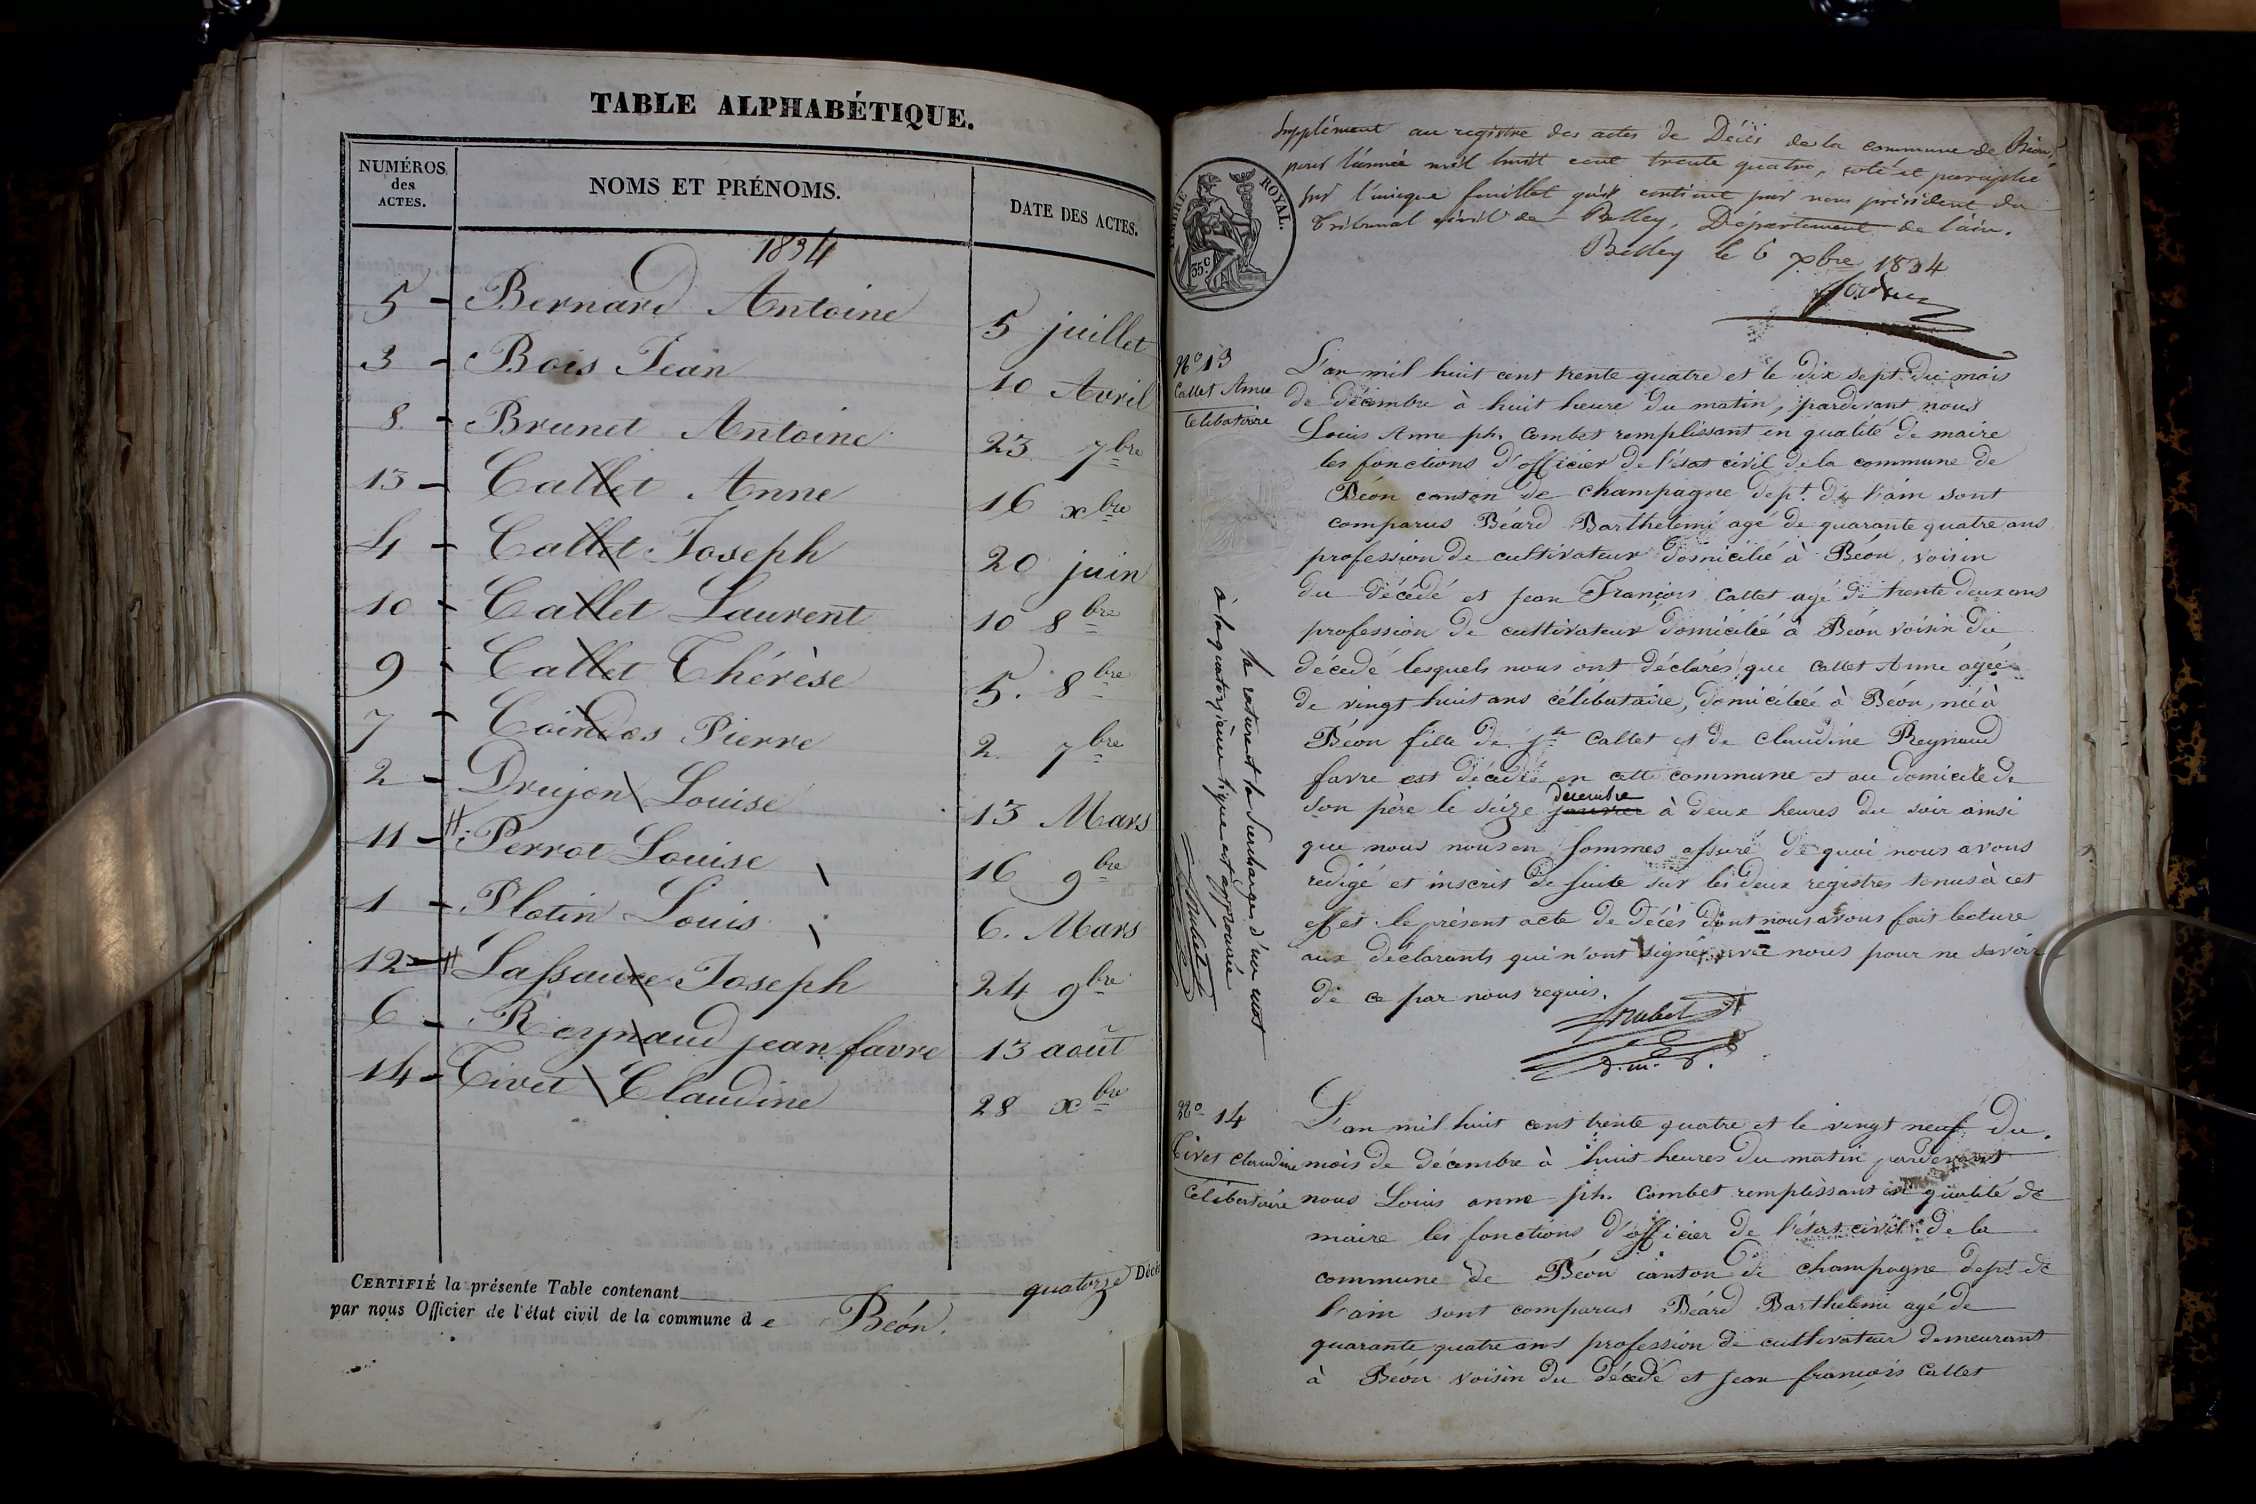 TABLE ALPHABÉTIQUE.
NUMÉROS des ACTES.
NOMS ET PRÉNOMS.
DATE DES ACTES.
1834
5 - Bernard Antoine 5 juillet
3 - Bois Jean 10 Avril
8 - Brunet Antoine 23 7bre
13 - Callet Anne 16 xbre
4 - Callet Joseph 20 juin
10 - Callet Laurent 10 8bre
9 - Callet Thérèse 5. 8bre
7 - Coindos Pierre 2 7bre
2 - Drujon Louise 13 Mars
11 - Perrot Louise 16 9bre
1 - Platin Louis 6. Mars
12 - Lassauce Joseph 24 9bre
6 - Reynaud jean favre 13 août
14 - Tivet Claudine 28 xbre
CERTIFIÉ la présente Table contenant quatorze Décè
par nous Officier de l'état civil de la commune de Béon.
Supplément au registre des actes de Décès de la commune de Béon,
pour l'année mil huit cent trente quatre, coté et paraphé
sur l'unique feuillet qu'il contient par nous président du
Tribunal civil de Belley, Département de l'ain.
Belley le 6 xbre 1834
TIMBRE ROYAL.
35c
No 13
Callet Anne
celibataire
L'an mil huit cent trente quatre et le dix sept du mois
de décembre à huit heure du matin, pardevant nous
Louis Anne jph. Combet remplissant en qualité de maire
les fonctions d'officier de l'état civil de la commune de
Béon canton de champagne dept. de l'ain sont
comparus Béard Barthelemi agé de quarante quatre ans
profession de cultivateur domicilié à Béon, voisin
du décédé et jean François Callet agé de trente deux ans
profession de cultivateur domicilié à Béon voisin du
décédé lesquels nous ont déclarés que Callet Anne agée
de vingt huit ans célibataire, domiciliée à Béon, née à
Béon fille de jh Callet et de claudine Reynaud
favre est décédée en cette commune et au domicile de
son père le seize janvier décembre à deux heures du soir ainsi
que nous nous en sommes assuré de quoi nous avons
rédigé et inscrit de suite sur les deux registres tenus à cet
effet le présent acte de décès dont nous avons fait lecture
aux déclarants qui n'ont signé avec nous pour ne savoir
de ce par nous requis.
la rature et la surcharge d'un mot
à la quatorzième ligne est approuvée
No 14
Tivet Claudine
Célibataire
L'an mil huit cent trente quatre et le vingt neuf du
mois de décembre à huit heures du matin pardevant
nous Louis anne jph. Combet remplissant en qualité de
maire les fonctions d'officier de l'état civil de la
commune de Béon canton de champagne dept de
l'ain sont comparus Béard Barthelemi agé de
quarante quatre ans profession de cultivateur demeurant
à Béon voisin du décédé et jean françois Callet